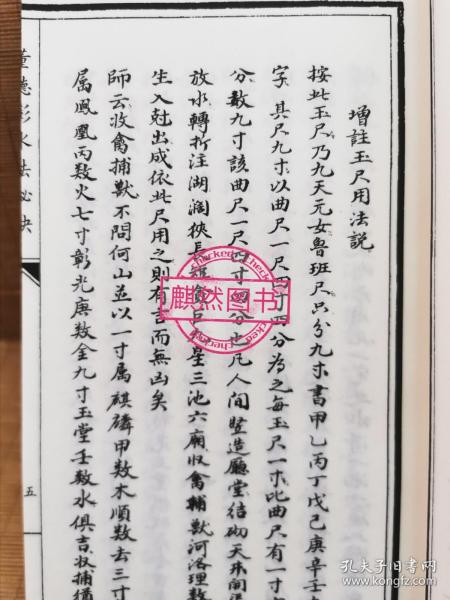 增註玉尺用法説
按此玉尺乃九天元女魯班尺只分九寸書甲乙丙丁戊己庚辛壬
字其尺九寸以曲尺一尺四寸四分為之每玉尺一寸比曲尺有一寸
分數九寸該曲尺一尺四寸四分也凡人間竪造廳堂結砌天井間
放水轉折注湖濶狹長短貪巨祿星三池六廟收禽輔獸河洛理数
生入尅出成依此尺用之則有吉而無凶矣
師云收禽捕獸不問何山並以一寸属麒麟甲数木順数去三寸
属鳳凰丙数火七寸彰光庚数金九寸玉堂壬数水俱吉收捕
董德彰水法秘訣
五
麒然图书
Checked
孔夫子旧书网
book.kongfz.com